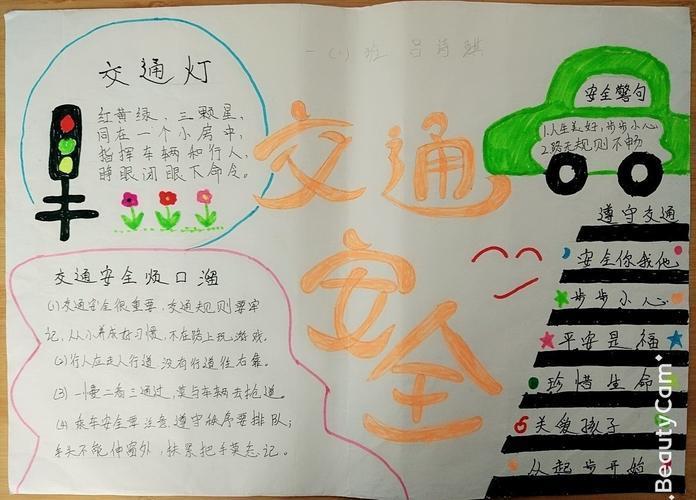 一(1)班 吕诗琪
交通灯
红黄绿、三颗星,
同在一个小房中,
指挥车辆和行人,
睁眼闭眼下命令。
交通安全
安全警句
1.人生美好,步步小心
2.路无规则不畅
遵守交通
安全你我他
步步小心
平安是福
珍惜生命
关爱孩子
从起步开始
交通安全顺口溜
(1)交通安全很重要,交通规则要牢
记,从小养成好习惯,不在路上玩游戏。
(2)行人应走人行道 没有行道往右靠。
(3)一慢二看三通过,莫与车辆去抢道。
(4)乘车安全要注意遵守秩序要排队;
手头不能伸窗外,扶紧把手莫忘记。
BeautyCam